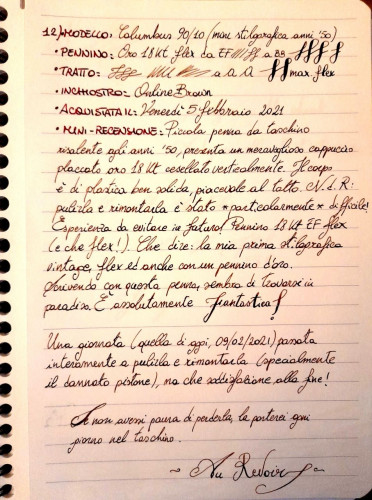 12/MODELLO: Columbus 90/10 (mini stilografica anni '50)
• PENNINO: Oro 18 Kt flex da EF a BB
• TRATTO: a a a max flex
• INCHIOSTRO: Online Brown
• ACQUISTATA IL: Venerdì 5 febbraio 2021
• MINI-RECENSIONE: Piccola penna da taschino
risalente agli anni '50, presenta un meraviglioso cappuccio
placcato oro 18 Kt cesellato verticalmente. Il corpo
è di plastica ben solida, piacevole al tatto. N.I.R:
pulirla e rimontarla è stato *particolarmente* difficile!
Esperienza da evitare in futuro! Pennino 18 Kt EF flex
(e che flex!). Che dire: la mia prima stilografica
vintage, flex ed anche con un pennino d'oro.
Scrivendo con questa penna, sembra di trovarsi in
paradiso. È assolutamente fantastica!
Una giornata (quella di oggi, 09/02/2021) passata
interamente a pulirla e rimontarla (specialmente
il dannato pistone), ma che soddisfazione alla fine!
Se non avessi paura di perderla, la porterei ogni
giorno nel taschino.
~ Au Revoir ~